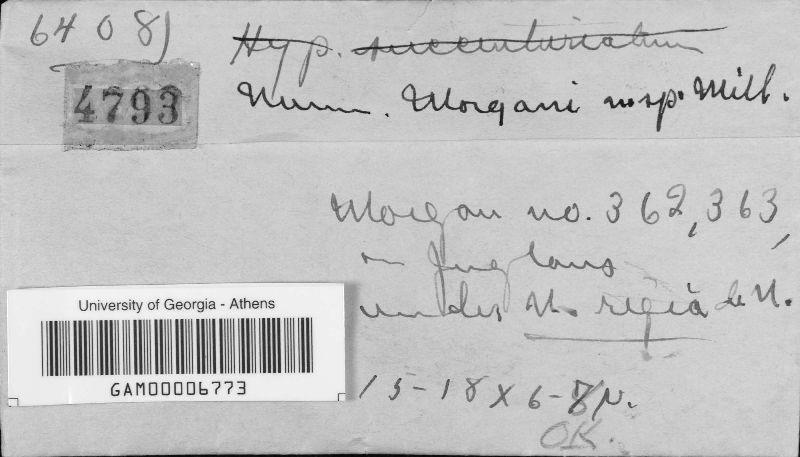 6408)
Hyp. succenturiatum
4793
Numm. Morgani n sp. Mill.
Morgan no. 362, 363,
on Juglans
under N. regia de N.
University of Georgia - Athens
GAM00006773
15-18 x 6-8 µ.
OK.